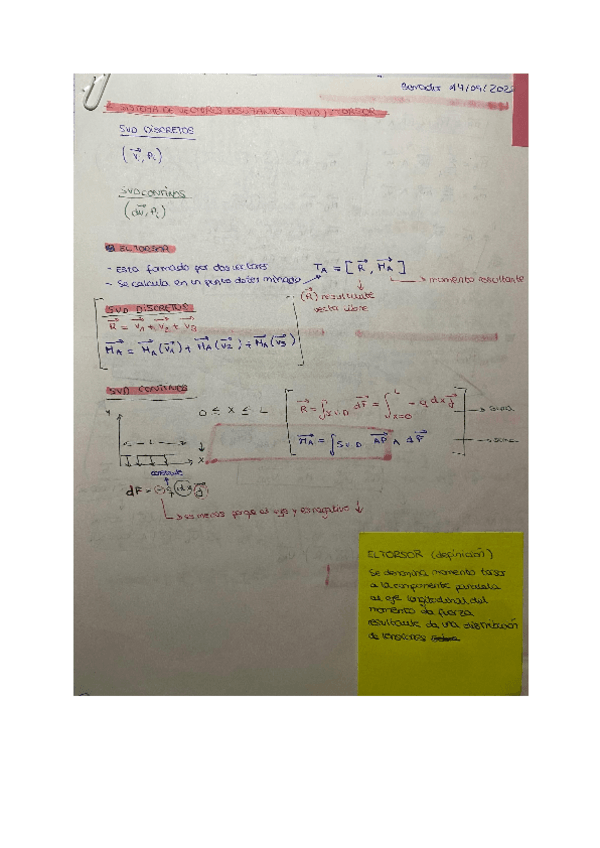 Borrador 14/09/202
SISTEMA DE VECTORES RESULTANTES (SVD) : TORSOR
SVD DISCRETOS
(V⃗i, Pi)
SVD CONTINUOS
(dv⃗, Pi)
EL TORSOR
- Esta formado por dos vectores
- Se calcula en un punto determinado
T_A = [R⃗, M⃗_A]
momento resultante
(R⃗) resultante
SVD DISCRETOS
R⃗ = v⃗1 + v⃗2 + v⃗3
M⃗_A = M⃗_A(v⃗1) + M⃗_A(v⃗2) + M⃗_A(v⃗3)
SVD CONTINUOS
Y
0 ≤ X ≤ L
L
X
constante
R⃗ = ∫SVD dF⃗ = ∫x=0 L - q dx j⃗
M⃗_A = ∫SVD AP⃗ ∧ dF⃗
dF = (-) q (dx) (j⃗)
es menos porque el eje y es negativo ↓
EL TORSOR (definición)
Se denomina momento torsor
a la componente paralela
al eje longitudinal del
momento de fuerza
resultante de una distribución
de tensiones